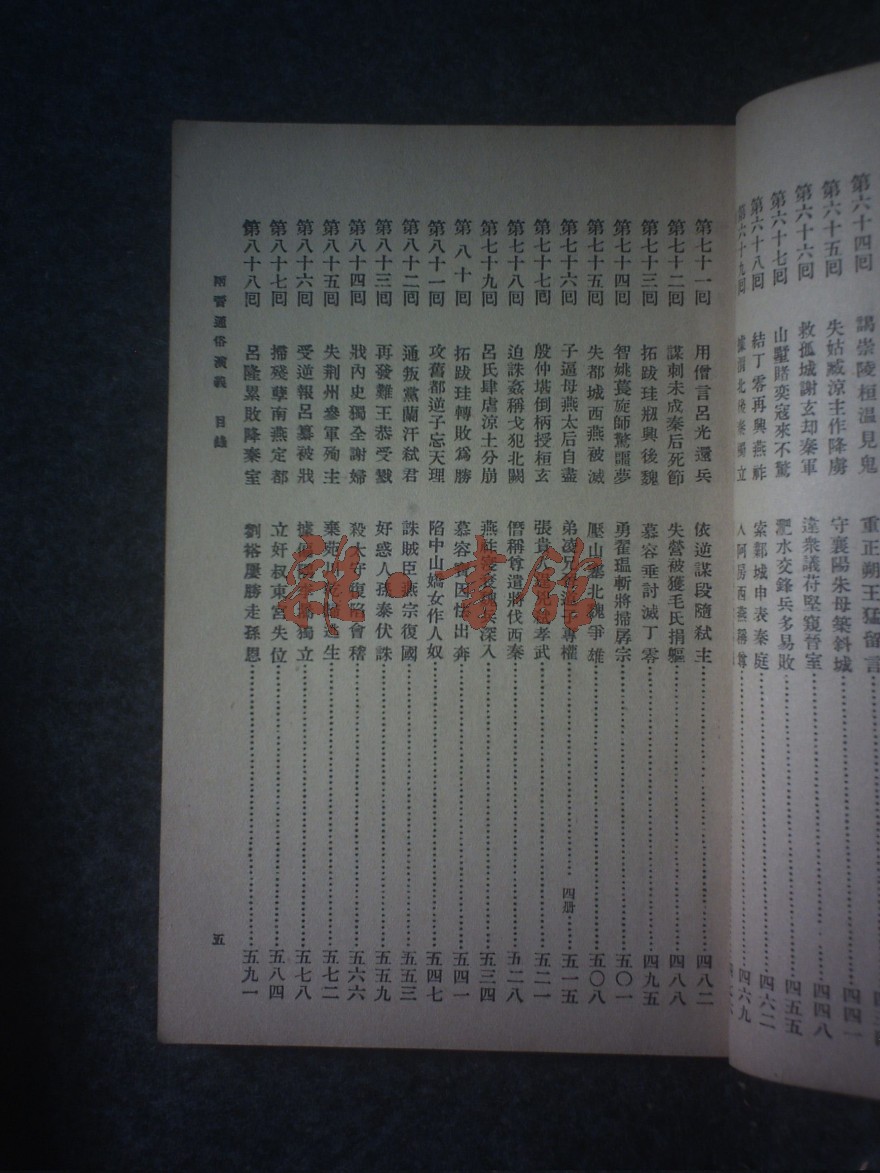 第六十四回 謁崇陵桓溫見鬼 重正朔王猛留言
第六十五回 失姑臧涼主作降虜 守襄陽朱母築斜城 四四一
第六十六回 救孤城謝玄却秦軍 違衆議苻堅窺晉室 四四八
第六十七回 山墅賭奕寇來不驚 淝水交鋒兵多易敗 四五五
第六十八回 結丁零再興燕祚 索鄴城申表秦庭 四六二
第六十九回 據渭北後秦獨立 入阿房西燕稱尊 四六九
第七十一回 用僧言呂光還兵 依逆謀段隨弑主 四八二
第七十二回 謀刺未成秦后死節 失營被獲毛氏捐軀 四八八
第七十三回 拓跋珪刱興後魏 慕容垂討滅丁零 四九五
第七十四回 智姚萇旋師驚噩夢 勇翟瑥斬將掃孱宗 五〇一
第七十五回 失都城西燕被滅 壓山塞北魏爭雄 五〇八
第七十六回 子逼母燕太后自盡 弟凌兄會道子專權 四册 五一五
第七十七回 殷仲堪倒柄授桓玄 張貴人逞兇弑孝武 五二一
第七十八回 迫誅姦稱戈犯北闕 僭稱尊遣將伐西秦 五二八
第七十九回 呂氏肆虐涼土分崩 燕祚寖衰魏兵深入 五三四
第八十回 拓跋珪轉敗爲勝 慕容寶因怯出奔 五四一
第八十一回 攻舊都逆子忘天理 陷中山嬌女作人奴 五四七
第八十二回 通叛黨蘭汗弑君 誅賊臣燕宗復國 五五三
第八十三回 再發難王恭受戮 好惑人孫泰伏誅 五五九
第八十四回 戕內史獨全謝婦 殺太守復陷會稽 五六六
第八十五回 失荆州參軍殉主 棄苑川乾歸逃生 五七二
第八十六回 受逆報呂纂被戕 據偏隅李暠獨立 五七八
第八十七回 掃殘孽南燕定都 立奸叔東宮失位 五八四
第八十八回 呂隆累敗降秦室 劉裕屢勝走孫恩 五九一
兩晉通俗演義 目錄 五
雜·書館